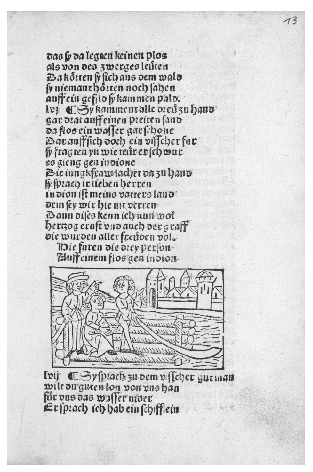 13
das sy da legten keinen plos
als von des zwerges leüten
Da körten sy sich aus dem wald
sy niemant hörten noch sahen
auff ein gefild sy kammen pald.
lvj ¶ Sy kamment alle dreü zu hand
gar drat auff einen preiten sand
da flos ein wasser gar schone
Dar auff sich doch ein visscher fur
sy fragten yn wie teür er schwur
es gieng gen indione
Die iungkfraw lachet da zu hand
sy sprach ir lieben herren
in dion ist meins vatters land
dem sey wir hie nit verren
Dann dises kenn ich nun wol
hertzog ernst vnd auch der graff
die wurden aller freüden vol.
Hie furen die drey person
Auff einem flos gen indion
lvij ¶ Sy sprach zu dem visscher gut man
wilt du guten lon von vns han
für vns das wasser nider
Er sprach ich hab ein schifflein